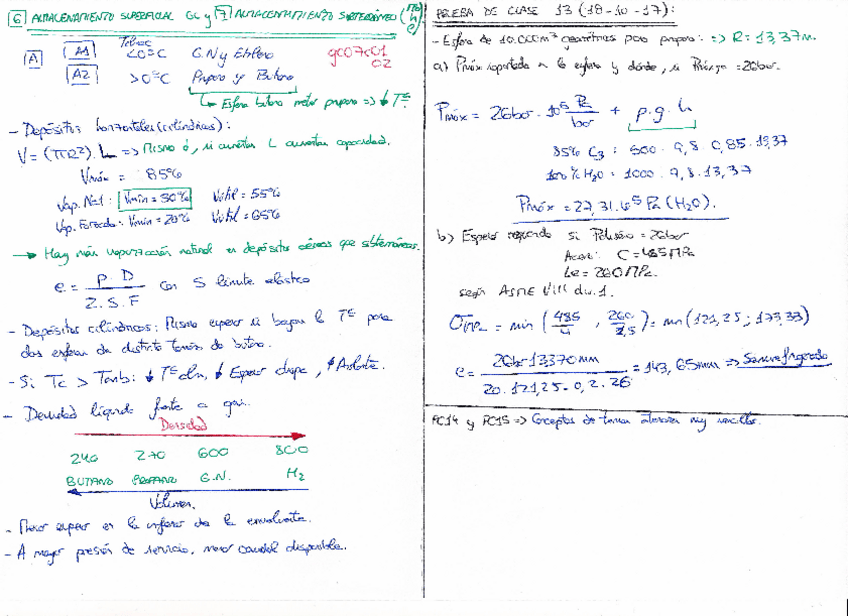 6 ALMACENAMIENTO SUPERFICIAL GL y 7 ALMACENAMIENTO SUBTERRÁNEO
A A1 <0ºC G.N y Etileno gc07c01
A2 >0ºC Propano y Butano 02
Esfera butano meter propano => ↓ Tª
- Depósitos horizontales (cilíndricos):
V = (πR²) · L => Mismo ø, si aumentar L aumentar capacidad.
Vmáx = 85%
Vap. Nat: Vmín = 30% Vútil = 55%
Vap. Forzada: Vmín = 20% Vútil = 65%
→ Hay más vaporización natural en depósitos aéreos que subterráneos.
e = P D / 2.S.F con S límite elástico
- Depósitos cilíndricos: Mismo espesor si bajan la Tª para
dos esferas de distinto tamaño de butano.
- Si Tc > Tamb: ↓ Tª ↓ Espesor chapa, Aislante.
- Densidad líquido frente a gas.
Densidad
240 270 600 800
BUTANO PROPANO G.N. H2
Volumen.
- Mayor espesor en la inferior de la envolvente.
- A mayor presión de servicio, menor caudal disponible.
PRUEBA DE CLASE 13 (18-10-17):
- Esfera de 10.000m³ geométricos para propano: => R = 13,37m.
a) Pmáx soportada en la esfera y dónde, si = 26bar.
Pmáx = 26bar · 10⁵ Pa/bar + ρ.g.h
85% C3: 500 · 9,8 · 0,85 · 13,37
100% H2O: 1000 · 9,8 · 13,37
Pmáx = 27,31.10⁵ Pa (H2O).
b) Espesor requerido si Pdiseño = 26bar
Acero: C = 485 MPa
Le = 260 MPa.
según ASME VIII div. 1.
= min (485/4 , 260/1,5) = min (121,25 ; 173,33)
e = 26bar · 13370 mm / 20 · 121,25 - 0,2 · 26 = 143,65mm =>
PC14 y PC15 => Conceptos de temas anteriores muy sencillos.